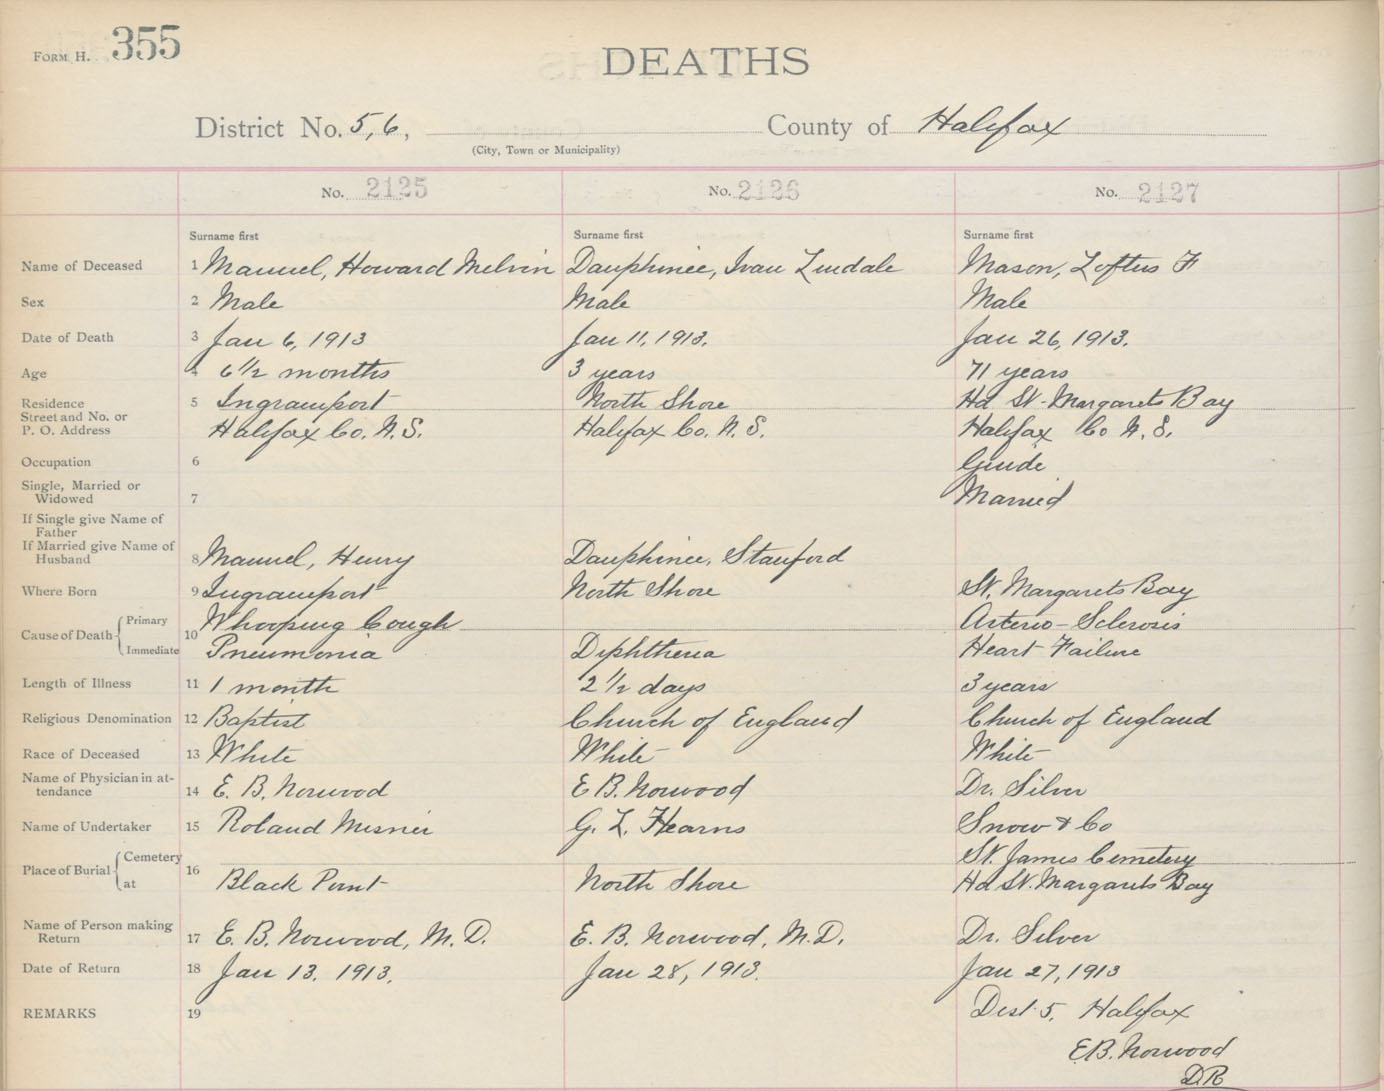 FORM H. 355
DEATHS
District No. 5, 6, County of Halifax
(City, Town or Municipality)
No. 2125 No. 2126 No. 2127
Surname first Surname first Surname first
Name of Deceased 1 Manuel, Howard Melvin Dauphinee, Ivan Lindale Mason, Loftus F
Sex 2 Male Male Male
Date of Death 3 Jan 6, 1913 Jan 11, 1913. Jan 26, 1913.
Age 4 6 1/2 months 3 years 71 years
Residence
Street and No. or
P. O. Address
5 Ingramport North Shore Hd St. Margarets Bay
Halifax Co. N. S. Halifax Co. N. S. Halifax Co N. S.
Occupation 6 Guide
Single, Married or
Widowed 7 Married
If Single give Name of
Father
If Married give Name of
Husband 8 Manuel, Henry Dauphinee, Stanford
Where Born 9 Ingramport North Shore St. Margarets Bay
Cause of Death 10
Primary Whooping Cough Arterio-Sclerosis
Immediate Pneumonia Diphtheria Heart Failure
Length of Illness 11 1 month 2 1/2 days 3 years
Religious Denomination 12 Baptist Church of England Church of England
Race of Deceased 13 White White White
Name of Physician in at-
tendance 14 E. B. Norwood E B. Norwood Dr. Silver
Name of Undertaker 15 Roland Misner G. L. Hearns Snow & Co
Place of Burial 16
Cemetery St. James Cemetery
at Black Point North Shore Hd St. Margarets Bay
Name of Person making
Return 17 E. B. Norwood, M. D. E. B. Norwood, M. D. Dr. Silver
Date of Return 18 Jan 13, 1913. Jan 28, 1913. Jan 27, 1913
REMARKS 19 Dist 5, Halifax
E.B. Norwood
D.R